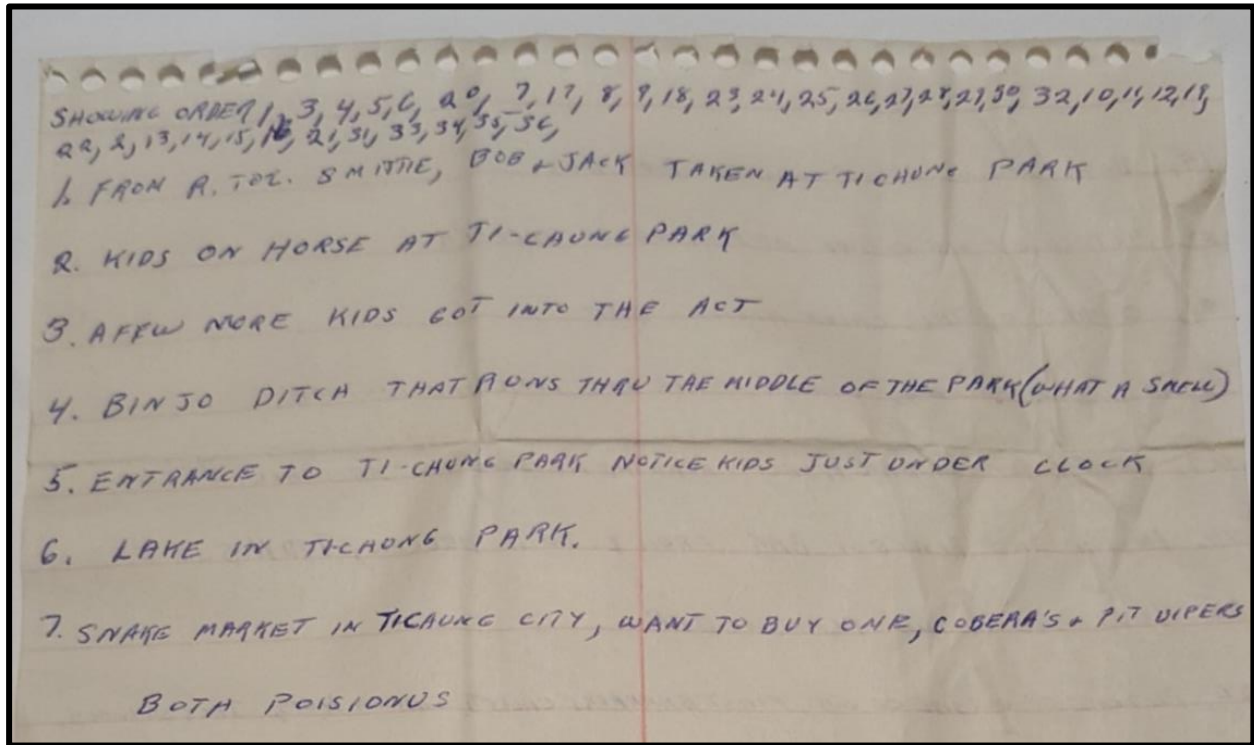 SHOWING ORDER 1, 3, 4, 5, 6, 20, 7, 17, 8, 9, 18, 23, 24, 25, 26, 27, 28, 29, 30, 32, 10, 11, 12, 19,
22, 2, 13, 14, 15, 16, 21, 31, 33, 34, 35, 36,
1. FROM R. TOL. SMITTIE, BOB & JACK TAKEN AT TICHUNG PARK
2. KIDS ON HORSE AT TI-CHUNG PARK
3. A FEW MORE KIDS GOT INTO THE ACT
4. BINJO DITCH THAT RUNS THRU THE MIDDLE OF THE PARK (WHAT A SMELL)
5. ENTRANCE TO TI-CHUNG PARK NOTICE KIDS JUST UNDER CLOCK
6. LAKE IN TI-CHUNG PARK.
7. SNAKE MARKET IN TICHUNG CITY, WANT TO BUY ONE, COBERA'S & PIT VIPERS
BOTH POISIONUS